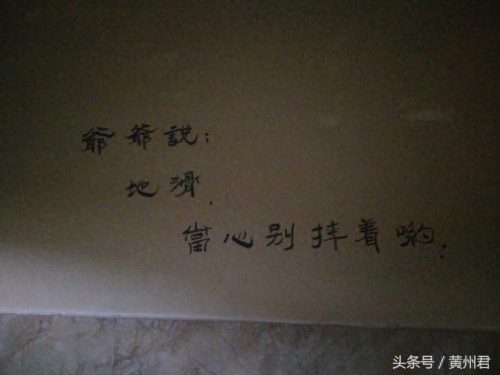 爺爺説：
地滑，
當心别摔着喲；
头条号 / 黄州君